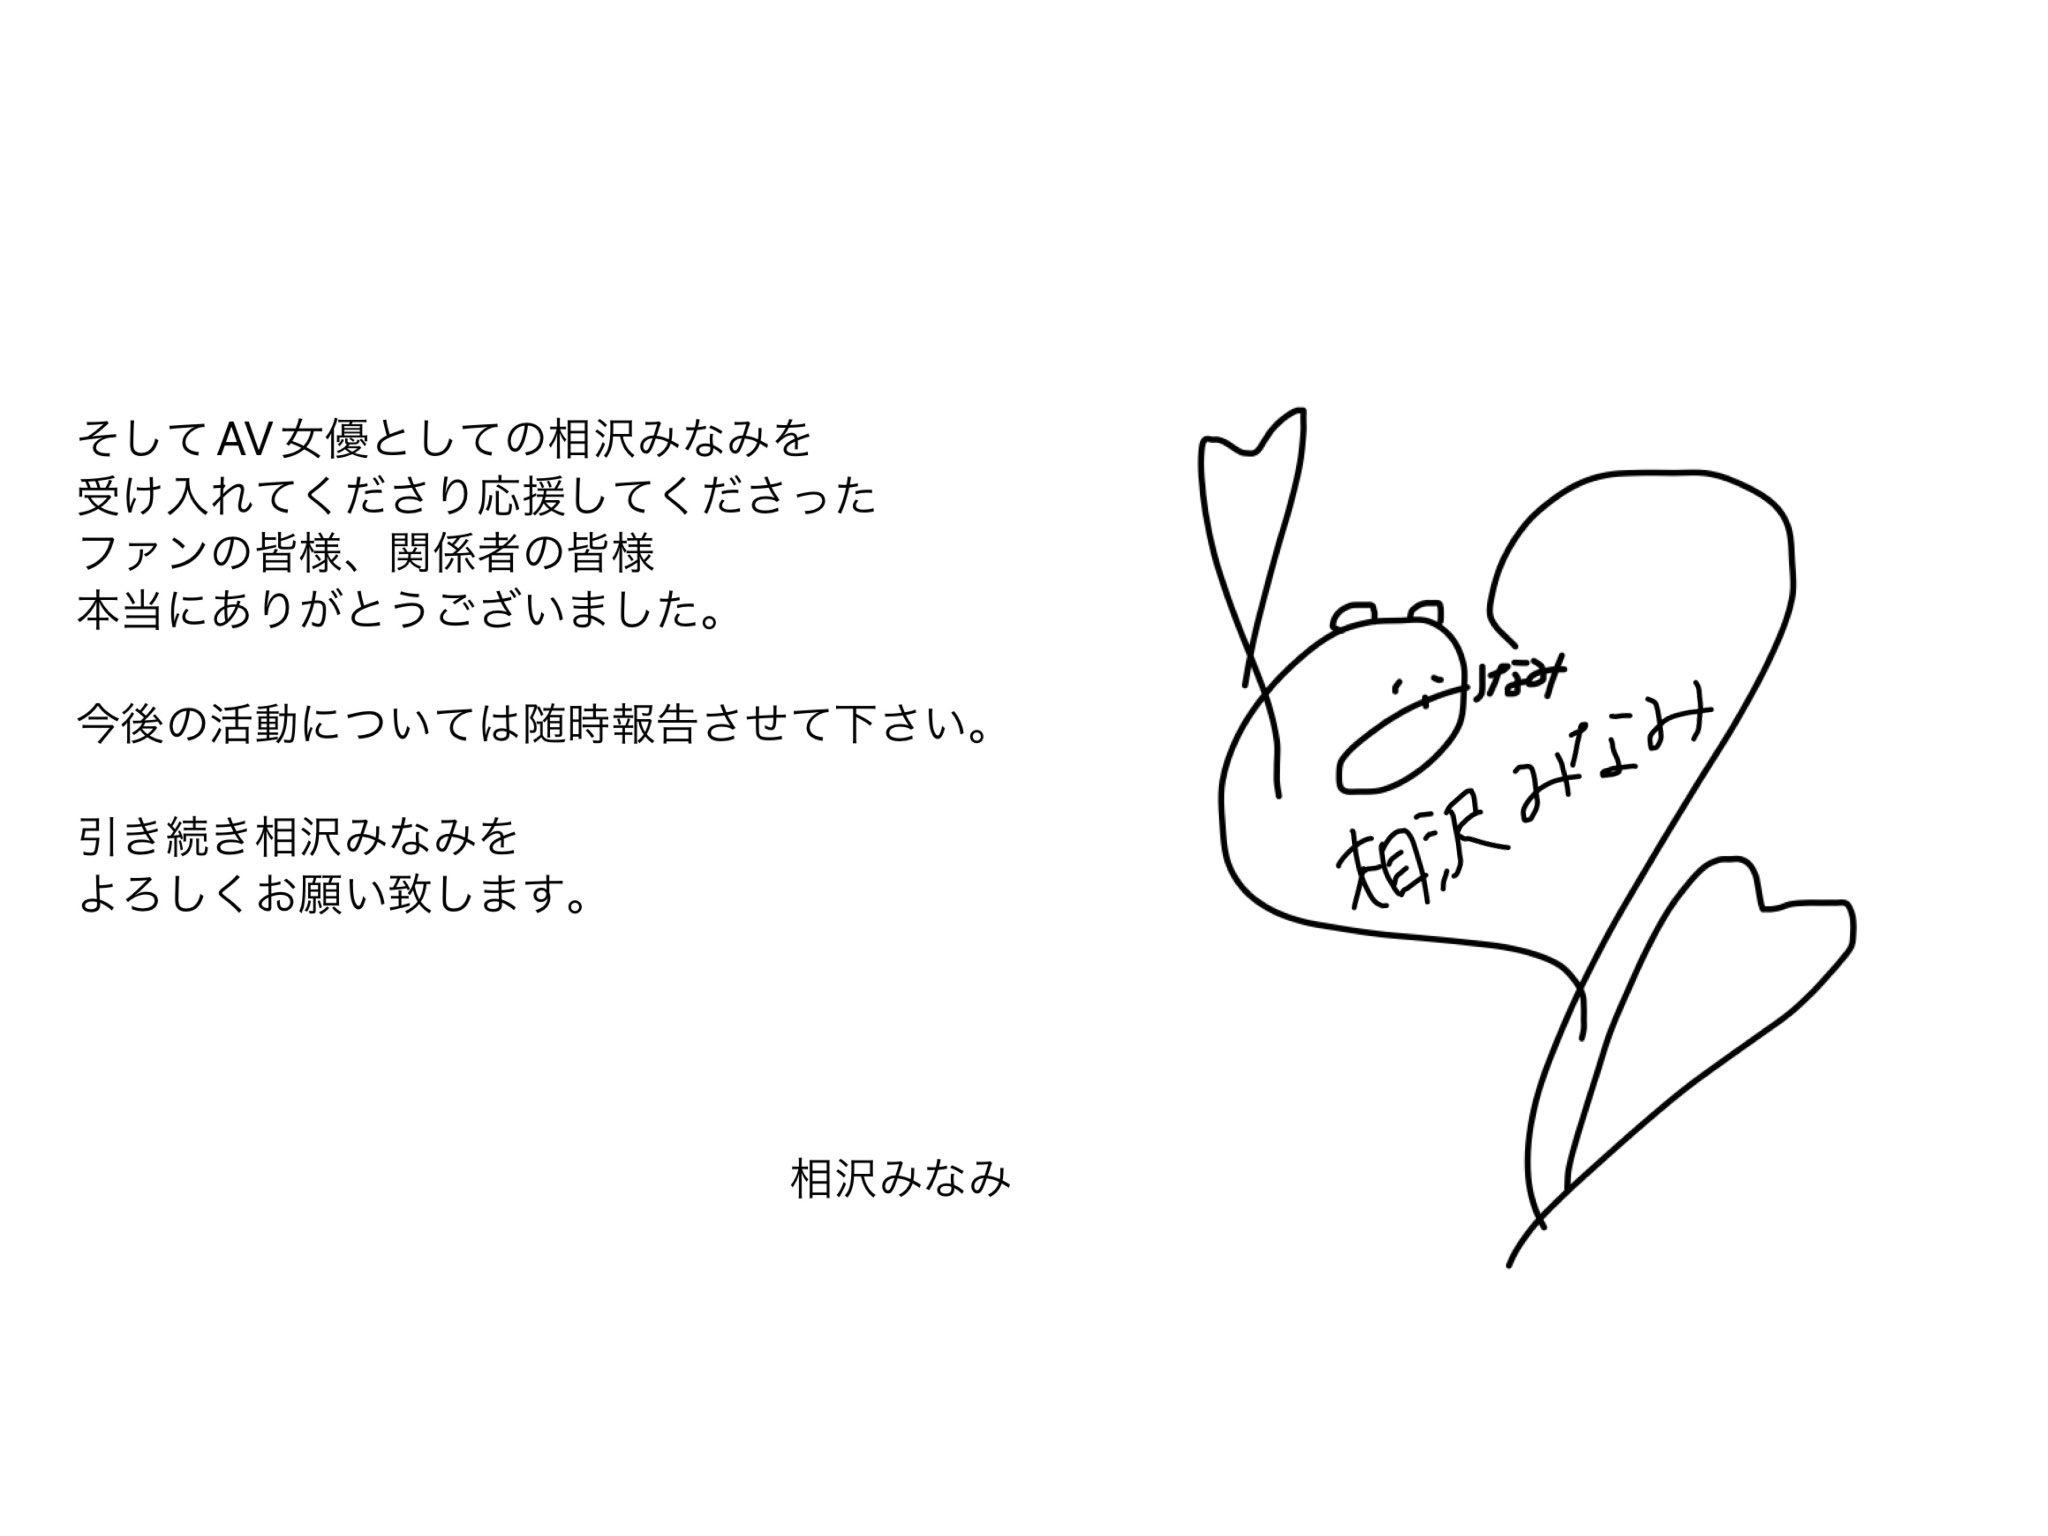 そしてAV女優としての相沢みなみを
受け入れてくださり応援してくださった
ファンの皆様、関係者の皆様
本当にありがとうございました。
今後の活動については随時報告させて下さい。
引き続き相沢みなみを
よろしくお願い致します。
相沢みなみ
相沢みなみ